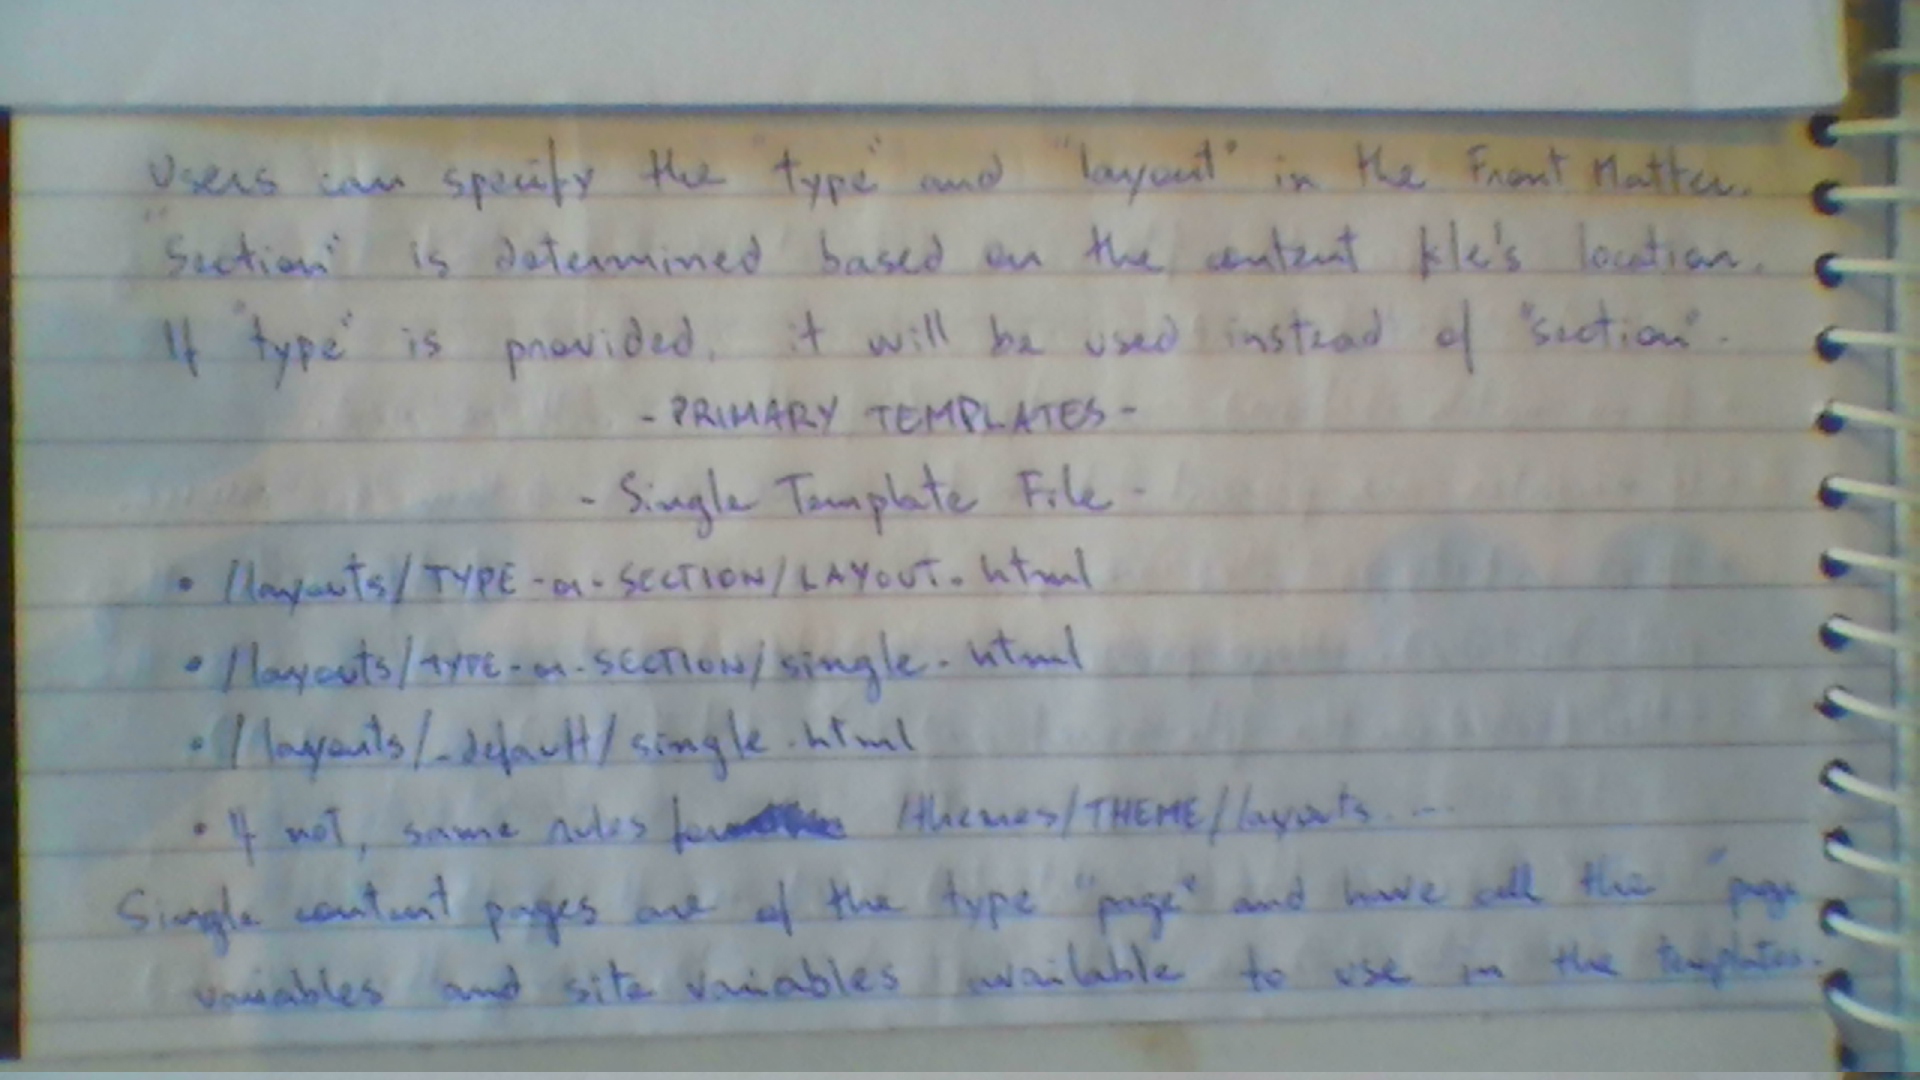 Users can specify the "type" and "layout" in the Front Matter.
"Section" is determined based on the content file's location.
If "type" is provided, it will be used instead of "section".
- PRIMARY TEMPLATES -
- Single Template File -
• /layouts/TYPE-or-SECTION/LAYOUT.html
• /layouts/TYPE-or-SECTION/single.html
• /layouts/_default/single.html
• If not, same rules for /themes/THEME/layouts....
Single content pages are of the type "page" and have all the "page
variables and site variables available to use in the templates.